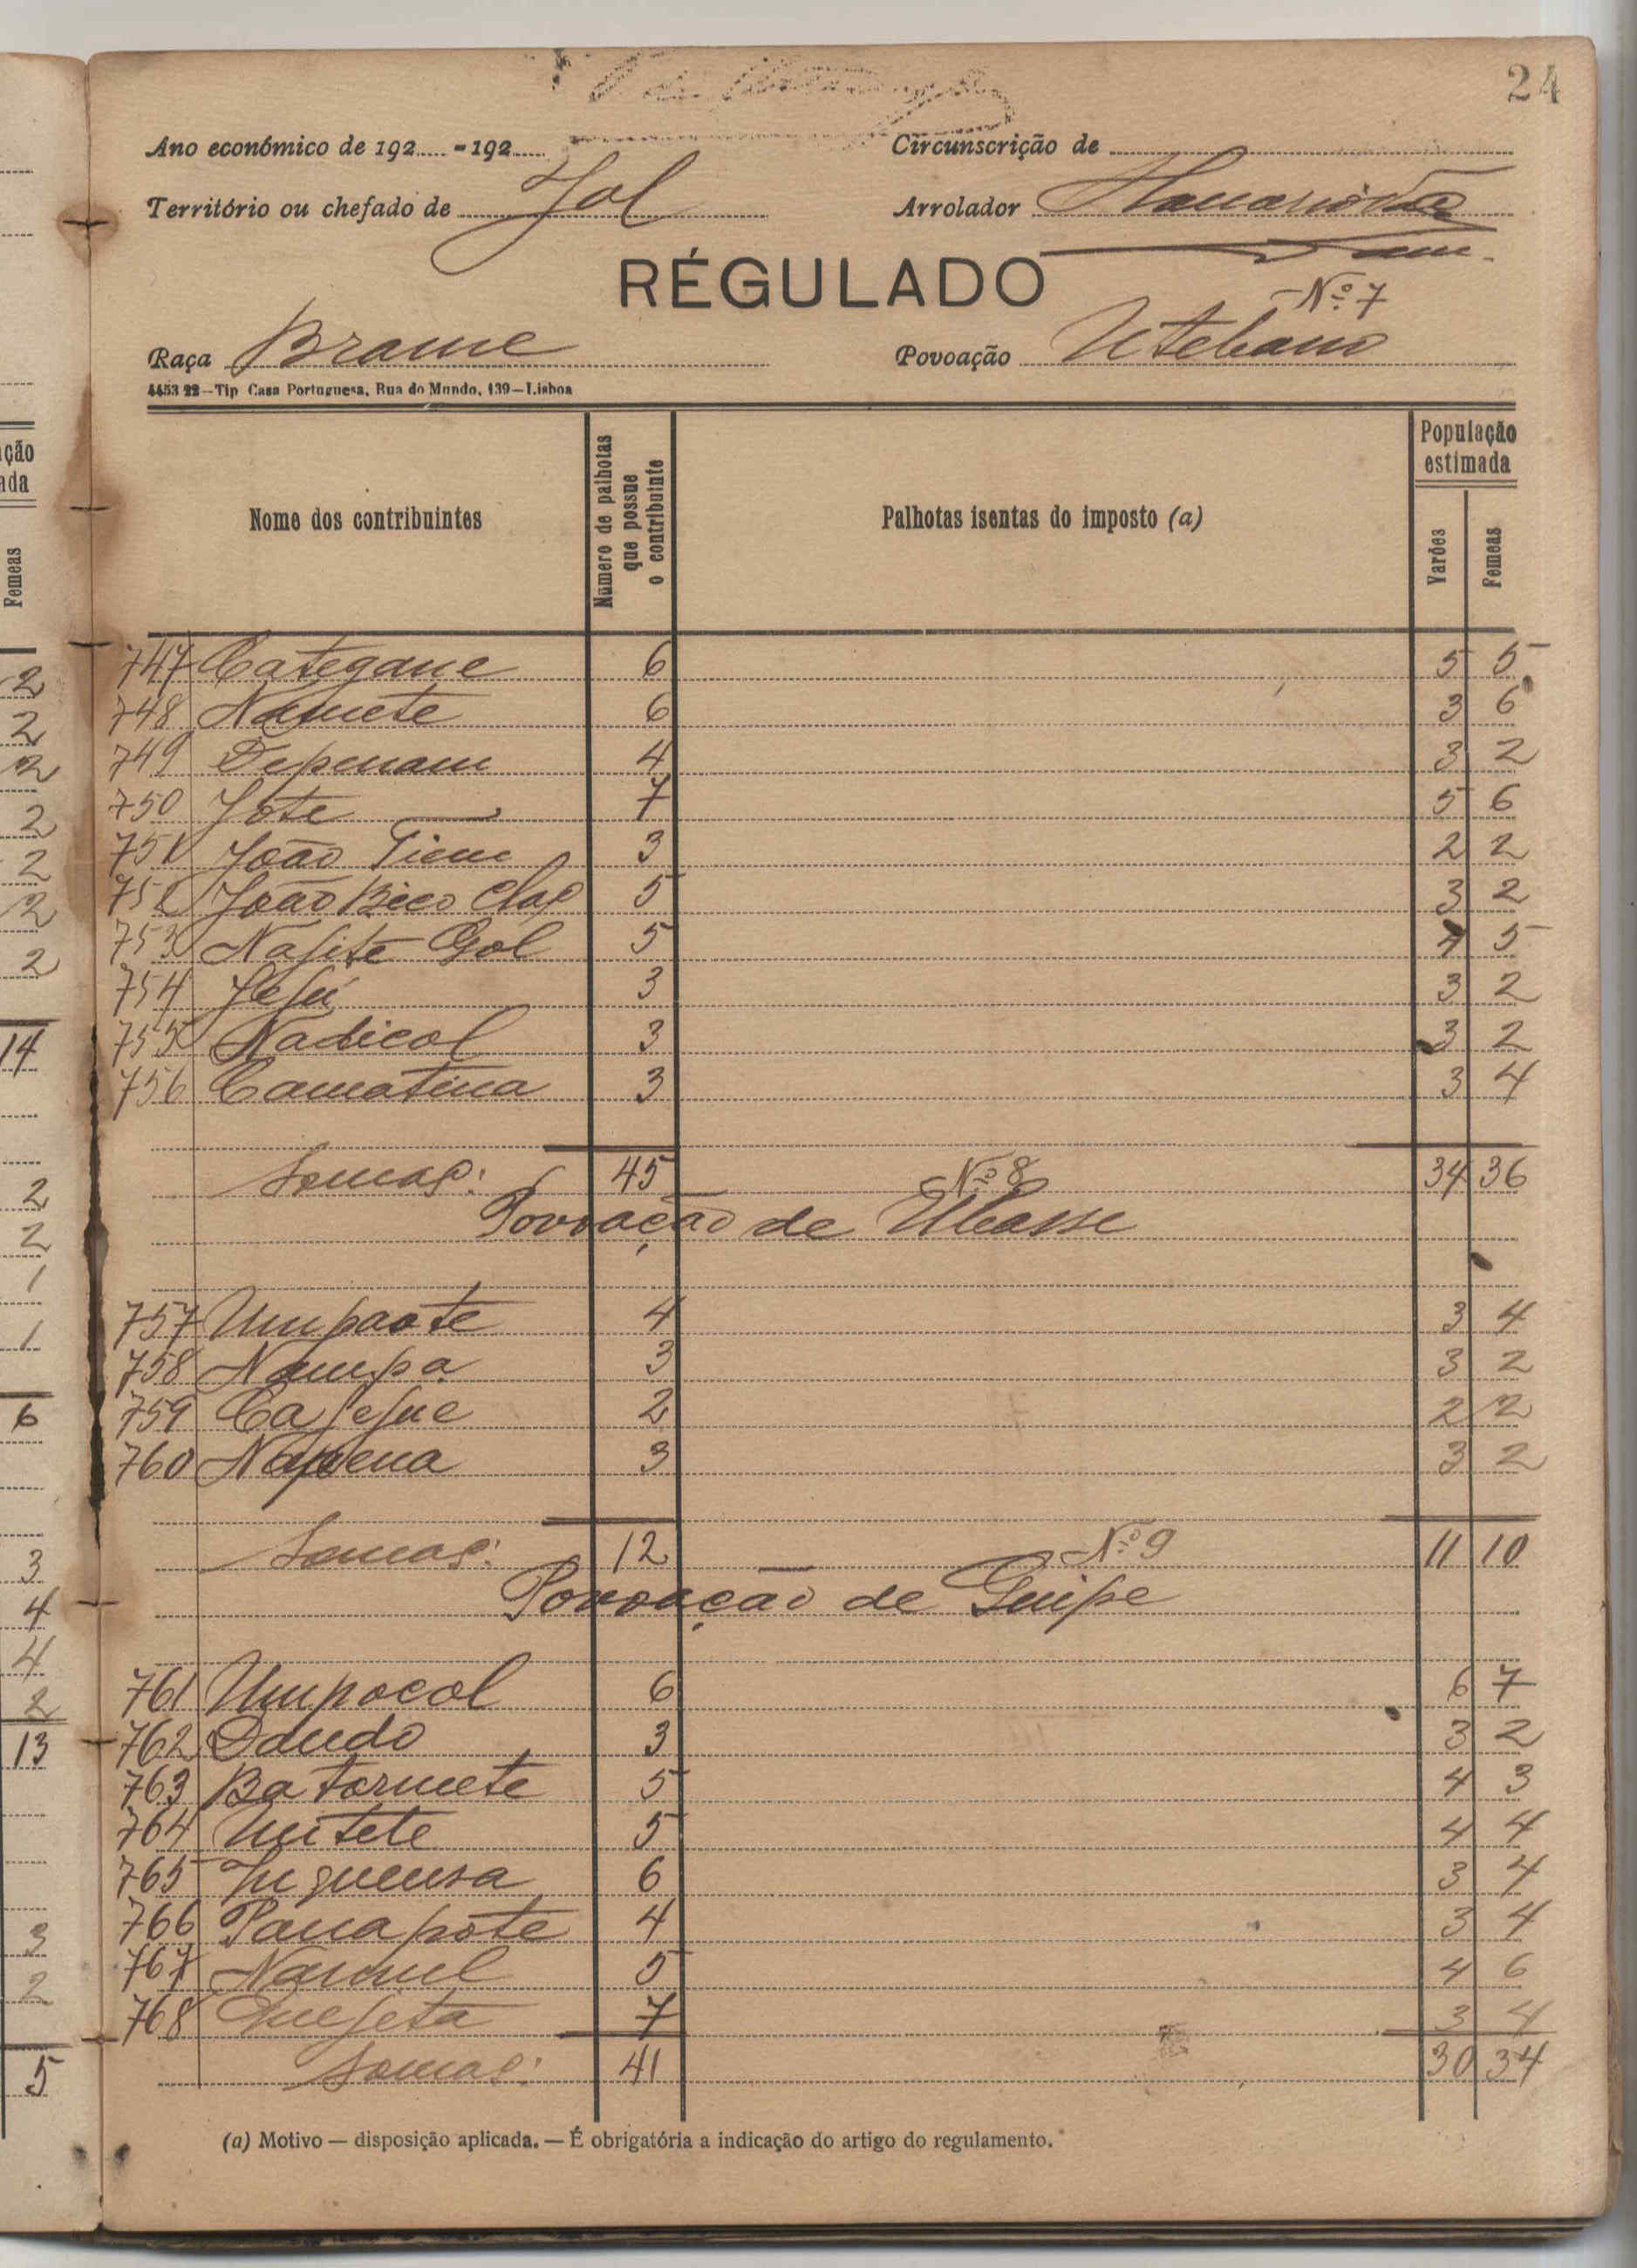 24
Ano económico de 192..... - 192.....
Circunscrição de
Território ou chefado de Jol
Arrolador
RÉGULADO
Nº 7
Raça Brame
Povoação
4453 22—Tip Casa Portuguesa, Rua do Mundo, 139—Lisboa
Nome dos contribuintes
Número de palhotas que possue o contribuinte
Palhotas isentas do imposto (a)
População estimada
Varões
Femeas
747 Categane 6 5 5
748 Namete 6 3 6
749 4 3 2
750 Jote 7 5 6
751 João 3 2 2
752 João Bico 5 3 2
753 Nafité Gol 5 4 5
754 3 3 2
755 Nadicol 3 3 2
756 Camatina 3 3 4
Somas: 45 34 36
Nº 8
Povoação de
757 Umpaote 4 3 4
758 Nampa 3 3 2
759 2 2 2
760 Napena 3 3 2
Somas: 12 11 10
Nº 9
Povoação de Guipe
761 Umpocol 6 6 7
762 Dando 3 3 2
763 Batormete 5 4 3
764 5 4 4
765 6 3 4
766 Panapote 4 3 4
767 5 4 6
768 Quejeta 7 3 4
Somas: 41 30 34
(a) Motivo — disposição aplicada. — É obrigatória a indicação do artigo do regulamento.